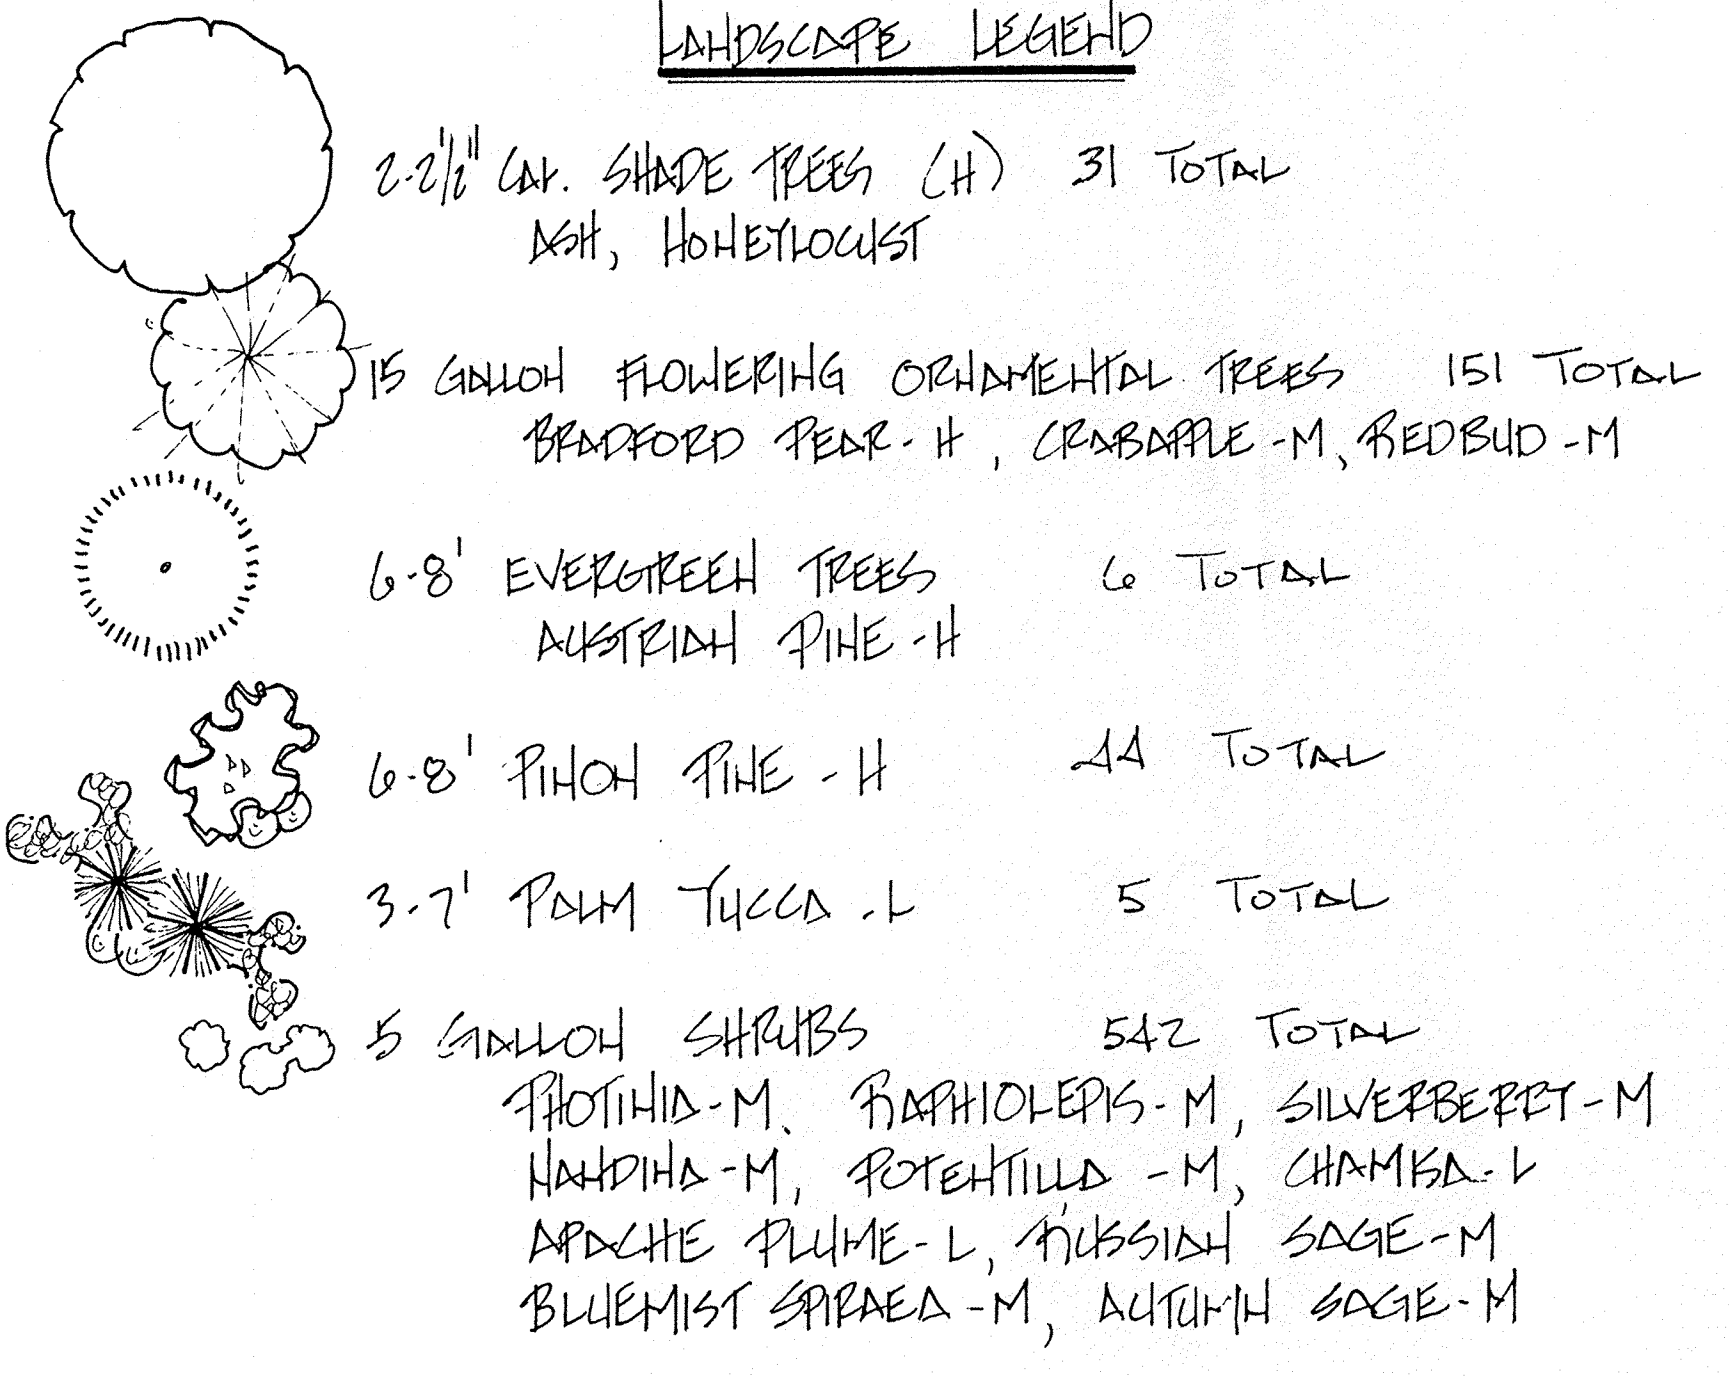 LANDSCAPE LEGEND
2-2½" CAL. SHADE TREES (H) 31 TOTAL
ASH, HONEYLOCUST
15 GALLON FLOWERING ORNAMENTAL TREES 151 TOTAL
BRADFORD PEAR-H, CRABAPPLE-M, REDBUD-M
6-8' EVERGREEN TREES 6 TOTAL
AUSTRIAN PINE-H
6-8' PINON PINE-H 44 TOTAL
3-7' PALM YUCCA-L 5 TOTAL
5 GALLON SHRUBS 542 TOTAL
PHOTINIA-M, RAPHIOLEPIS-M, SILVERBERRY-M
NANDINA-M, POTENTILLA-M, CHAMISA-L
APACHE PLUME-L, RUSSIAN SAGE-M
BLUEMIST SPIRAEA-M, AUTUMN SAGE-M